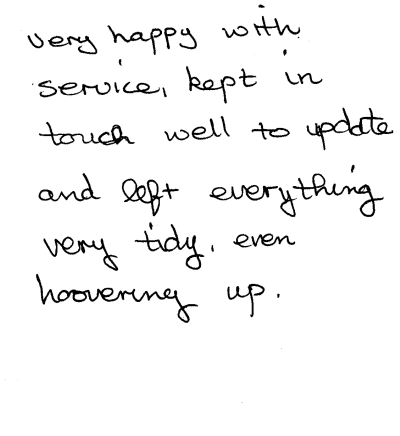 very happy with
service, kept in
touch well to update
and left everything
very tidy, even
hoovering up.